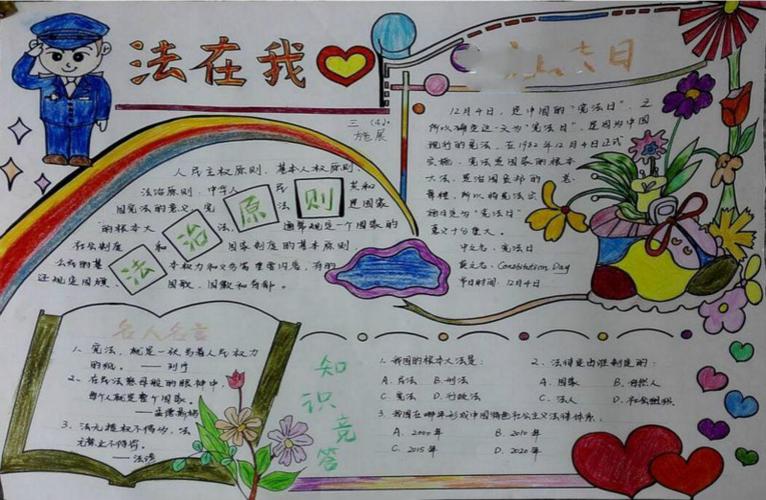 法在我
日
三（4）.
施展
人民主权原则、基本人权原则、
法治原则。中华人 民 共和
国宪法的意义，宪 法 是国家
的根本大 法，通常规定一个国家的
社会制度 国家制度的基本原则
本权力和义务等重要内容，有的
还规定国旗、 国歌、国徽和首都。
法治原则
12月4日，是中国的“宪法日”。之
所以确定这一天为“宪法日”，是因为中国
现行的宪法，在1982年12月4日正式
实施。宪法是国家的根本
大法，是治国安邦的 总
章程，所以将宪法实
施日定为“宪法日”
意义十分重大。
中文名：宪法日
英文名：Constitution Day
节日时间：12月4日
名人名言
1、宪法，就是一张写着人民权力
的纸。——列宁
2、在民法慈母般的眼神中，
每个人就是整个国家。
——孟德斯鸠
3、法无授权不得行，法
无禁止不得惩。
——法谚
知识竞答
1、我国的根本大法是：
A、民法 B、刑法
C、宪法 D、行政法
2、法律是由谁制定的：
A、国家 B、自然人
C、法人 D、社会组织
3、我国在哪年形成中国特色社会主义法律体系。
A、2000年 B、2010年
C、2015年 D、2020年